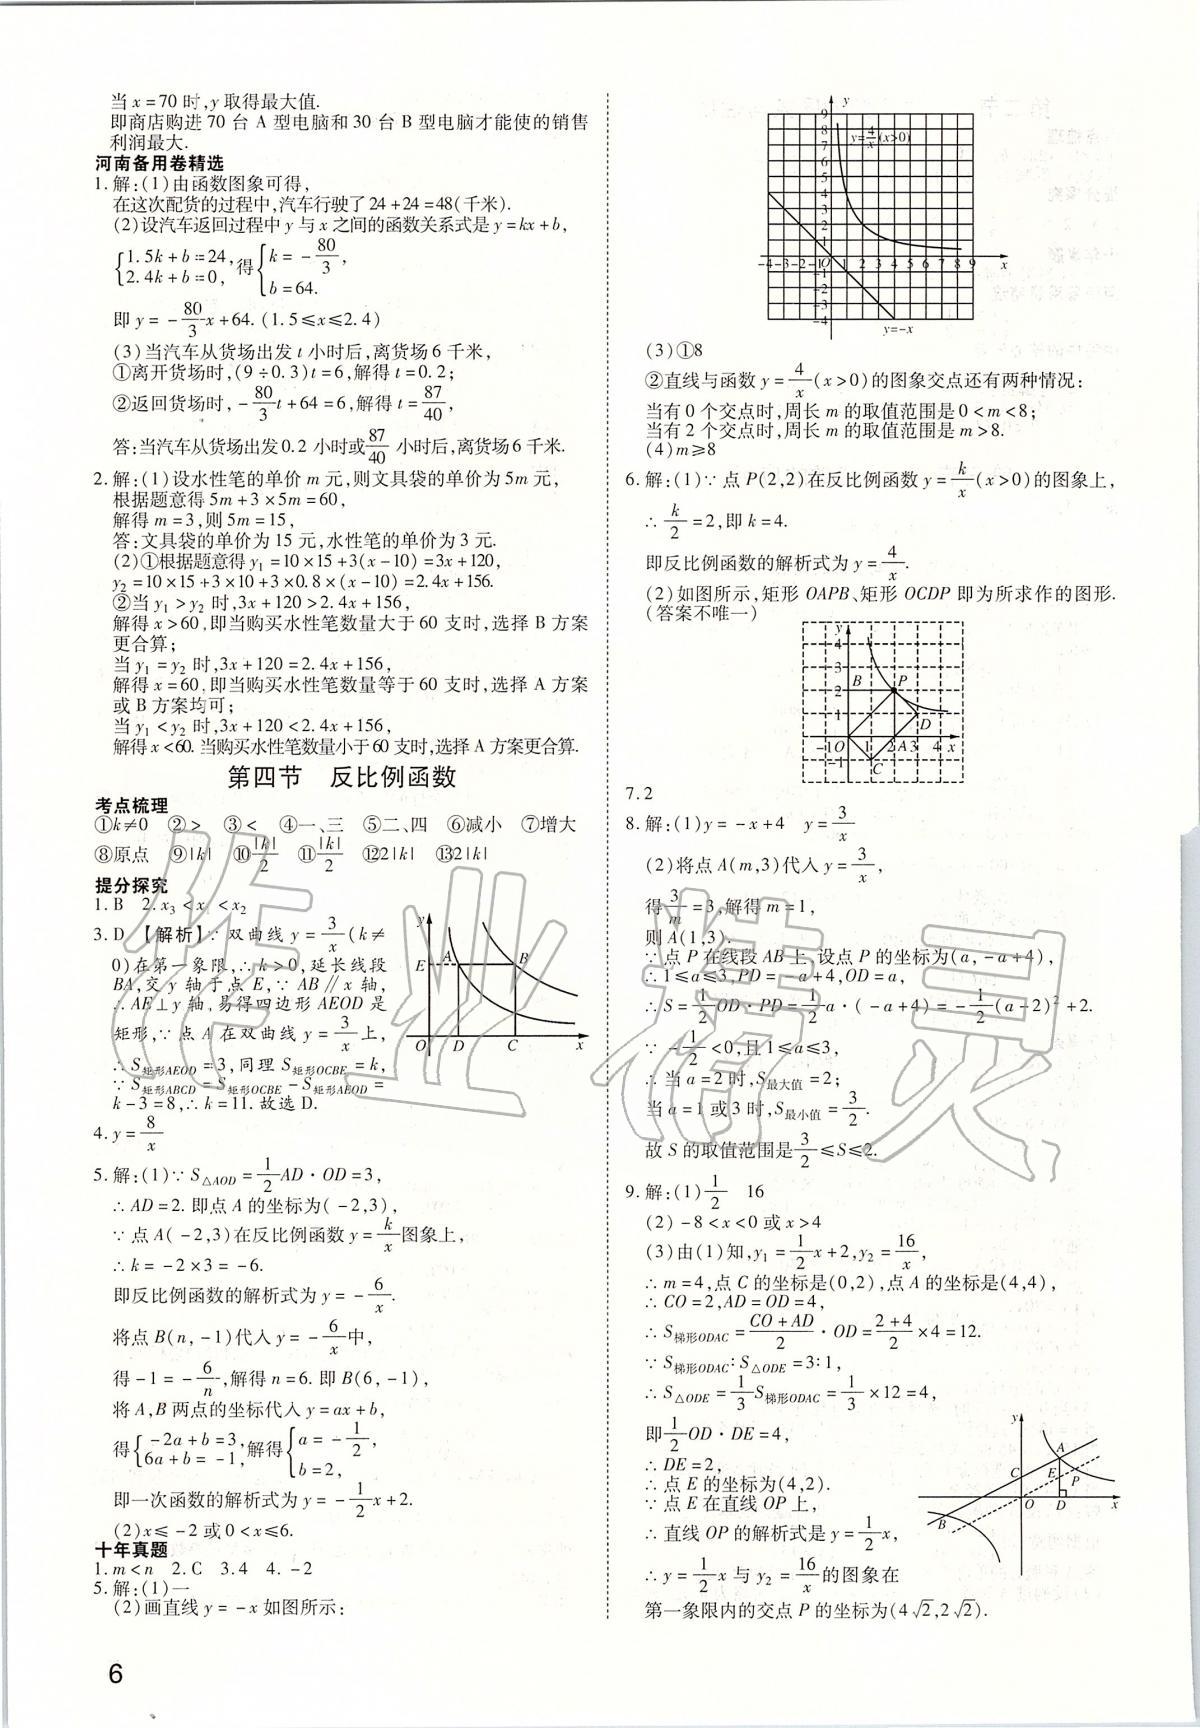 当x=70时,y取得最大值.
即商店购进70台A型电脑和30台B型电脑才能使的销售
利润最大.
河南备用卷精选
1.解:(1)由函数图象可得,
在这次配货的过程中,汽车行驶了24+24=48(千米).
(2)设汽车返回过程中y与x之间的函数关系式是y=kx+b,
{1.5k+b=24, 2.4k+b=0, 得{k=-80/3, b=64.
即y=-80/3x+64.(1.5≤x≤2.4)
(3)当汽车从货场出发t小时后,离货场6千米,
①离开货场时,(9÷0.3)t=6,解得t=0.2;
②返回货场时,-80/3t+64=6,解得t=87/40,
答:当汽车从货场出发0.2小时或87/40小时后,离货场6千米.
2.解:(1)设水性笔的单价m元,则文具袋的单价为5m元,
根据题意得5m+3×5m=60,
解得m=3,则5m=15,
答:文具袋的单价为15元,水性笔的单价为3元.
(2)①根据题意得y₁=10×15+3(x-10)=3x+120,
y₂=10×15+3×10+3×0.8×(x-10)=2.4x+156.
②当y₁>y₂时,3x+120>2.4x+156,
解得x>60,即当购买水性笔数量大于60支时,选择B方案
更合算;
当y₁=y₂时,3x+120=2.4x+156,
解得x=60,即当购买水性笔数量等于60支时,选择A方案
或B方案均可;
当y₁<y₂时,3x+120<2.4x+156,
解得x<60.当购买水性笔数量小于60支时,选择A方案更合算.
第四节 反比例函数
考点梳理
①k≠0 ②> ③< ④一、三 ⑤二、四 ⑥减小 ⑦增大
⑧原点 ⑨|k| ⑩|k|/2 ⑪|k|/2 ⑫2|k| ⑬2|k|
提分探究
1.B 2.x₃<x₁<x₂
3.D 【解析】∵双曲线y=3/x(k≠
0)在第一象限,∴k>0,延长线段
BA,交y轴于点E,∵AB∥x轴,
∴AE⊥y轴,易得四边形AEOD是
矩形,∵点A在双曲线y=3/x上,
∴S矩形AEOD=3,同理S矩形OCBE=k,
∵S矩形ABCD=S矩形OCBE-S矩形AEOD=
k-3=8,∴k=11.故选D.
y
E A B
O D C x
4.y=8/x
5.解:(1)∵S△AOD=1/2AD·OD=3,
∴AD=2.即点A的坐标为(-2,3),
∵点A(-2,3)在反比例函数y=k/x图象上,
∴k=-2×3=-6.
即反比例函数的解析式为y=-6/x.
将点B(n,-1)代入y=-6/x中,
得-1=-6/n,解得n=6.即B(6,-1),
将A,B两点的坐标代入y=ax+b,
得{-2a+b=3, 6a+b=-1, 解得{a=-1/2, b=2,
即一次函数的解析式为y=-1/2x+2.
(2)x≤-2或0<x≤6.
十年真题
1.m<n 2.C 3.4 4.-2
5.解:(1)一
(2)画直线y=-x如图所示:
6
y
9
8
7
6
5
4
3
2
1
y=4/x(x>0)
-4-3-2-1O 1 2 3 4 5 6 7 8 9 x
-1
-2
-3
-4
y=-x
(3)①8
②直线与函数y=4/x(x>0)的图象交点还有两种情况:
当有0个交点时,周长m的取值范围是0<m<8;
当有2个交点时,周长m的取值范围是m>8.
(4)m≥8
6.解:(1)∵点P(2,2)在反比例函数y=k/x(x>0)的图象上,
∴k/2=2,即k=4.
即反比例函数的解析式为y=4/x.
(2)如图所示,矩形OAPB、矩形OCDP即为所求作的图形.
(答案不唯一)
y
4
3
2 B P
1 D
-1 O 1 2 A 3 4 x
-1 C
7.2
8.解:(1)y=-x+4 y=3/x
(2)将点A(m,3)代入y=3/x,
得3/m=3,解得m=1,
则A(1,3).
∵点P在线段AB上,设点P的坐标为(a,-a+4),
∴1≤a≤3,PD=-a+4,OD=a,
∴S=1/2OD·PD=1/2a·(-a+4)=-1/2(a-2)²+2.
∵-1/2<0,且1≤a≤3,
∴当a=2时,S最大值=2;
当a=1或3时,S最小值=3/2.
故S的取值范围是3/2≤S≤2.
9.解:(1)1/2 16
(2)-8<x<0或x>4
(3)由(1)知,y₁=1/2x+2,y₂=16/x,
∴m=4,点C的坐标是(0,2),点A的坐标是(4,4),
∴CO=2,AD=OD=4,
∴S梯形ODAC=(CO+AD)/2·OD=(2+4)/2×4=12.
∵S梯形ODAC∶S△ODE=3∶1,
∴S△ODE=1/3S梯形ODAC=1/3×12=4,
即1/2OD·DE=4,
∴DE=2,
∴点E的坐标为(4,2).
∵点E在直线OP上,
∴直线OP的解析式是y=1/2x,
∴y=1/2x与y₂=16/x的图象在
第一象限内的交点P的坐标为(4√2,2√2).
y
A
C E P
O D x
B
作业精灵